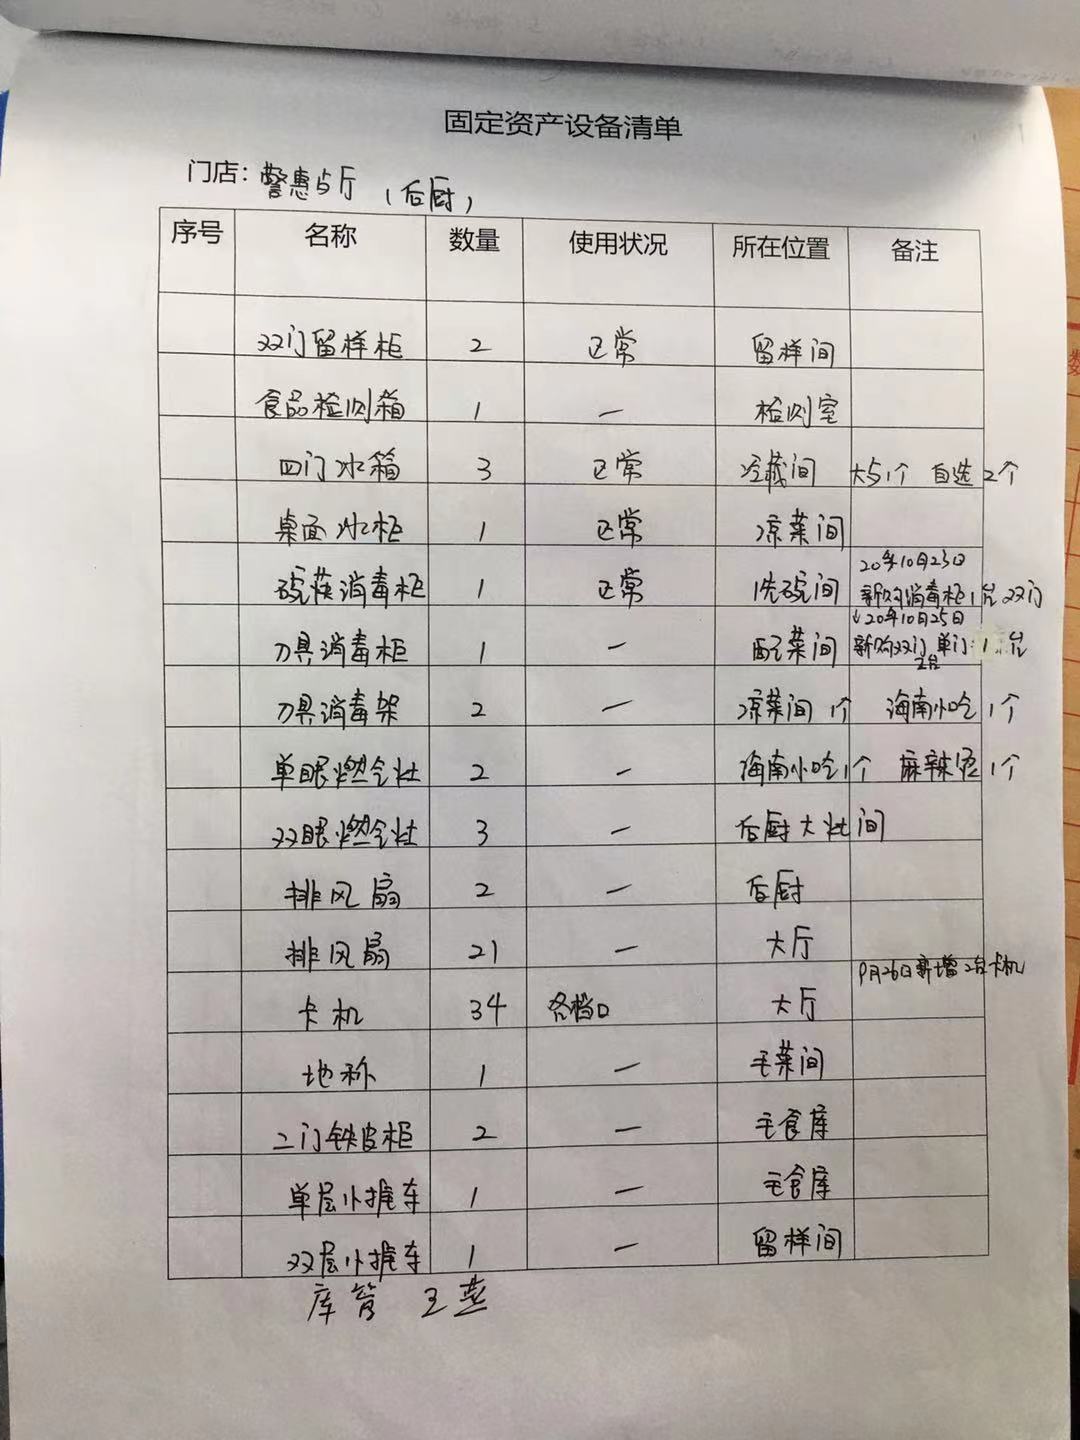 固定资产设备清单
门店：警惠与厅（后厨）
序号 名称 数量 使用状况 所在位置 备注
双门留样柜 2 正常 留样间
食品检测箱 1 — 检测室
四门冰箱 3 正常 冷藏间 大与1个 自选2个
桌面冰柜 1 正常 凉菜间
20年10月23日
碗筷消毒柜 1 正常 洗碗间 新购消毒柜1台双门
↓20年10月25日
刀具消毒柜 1 — 配菜间 新购双门 单门1台
刀具消毒架 2 — 凉菜间1个 海南小吃1个
单眼燃气灶 2 — 海南小吃1个 麻辣烫1个
双眼燃气灶 3 — 后厨大灶间
排风扇 2 — 后厨
排风扇 21 — 大厅
9月26日新增2台卡机
卡机 34 各档口 大厅
地称 1 — 毛菜间
二门铁皮柜 2 — 主食库
单层小推车 1 — 主食库
双层小推车 1 — 留样间
库管 王燕